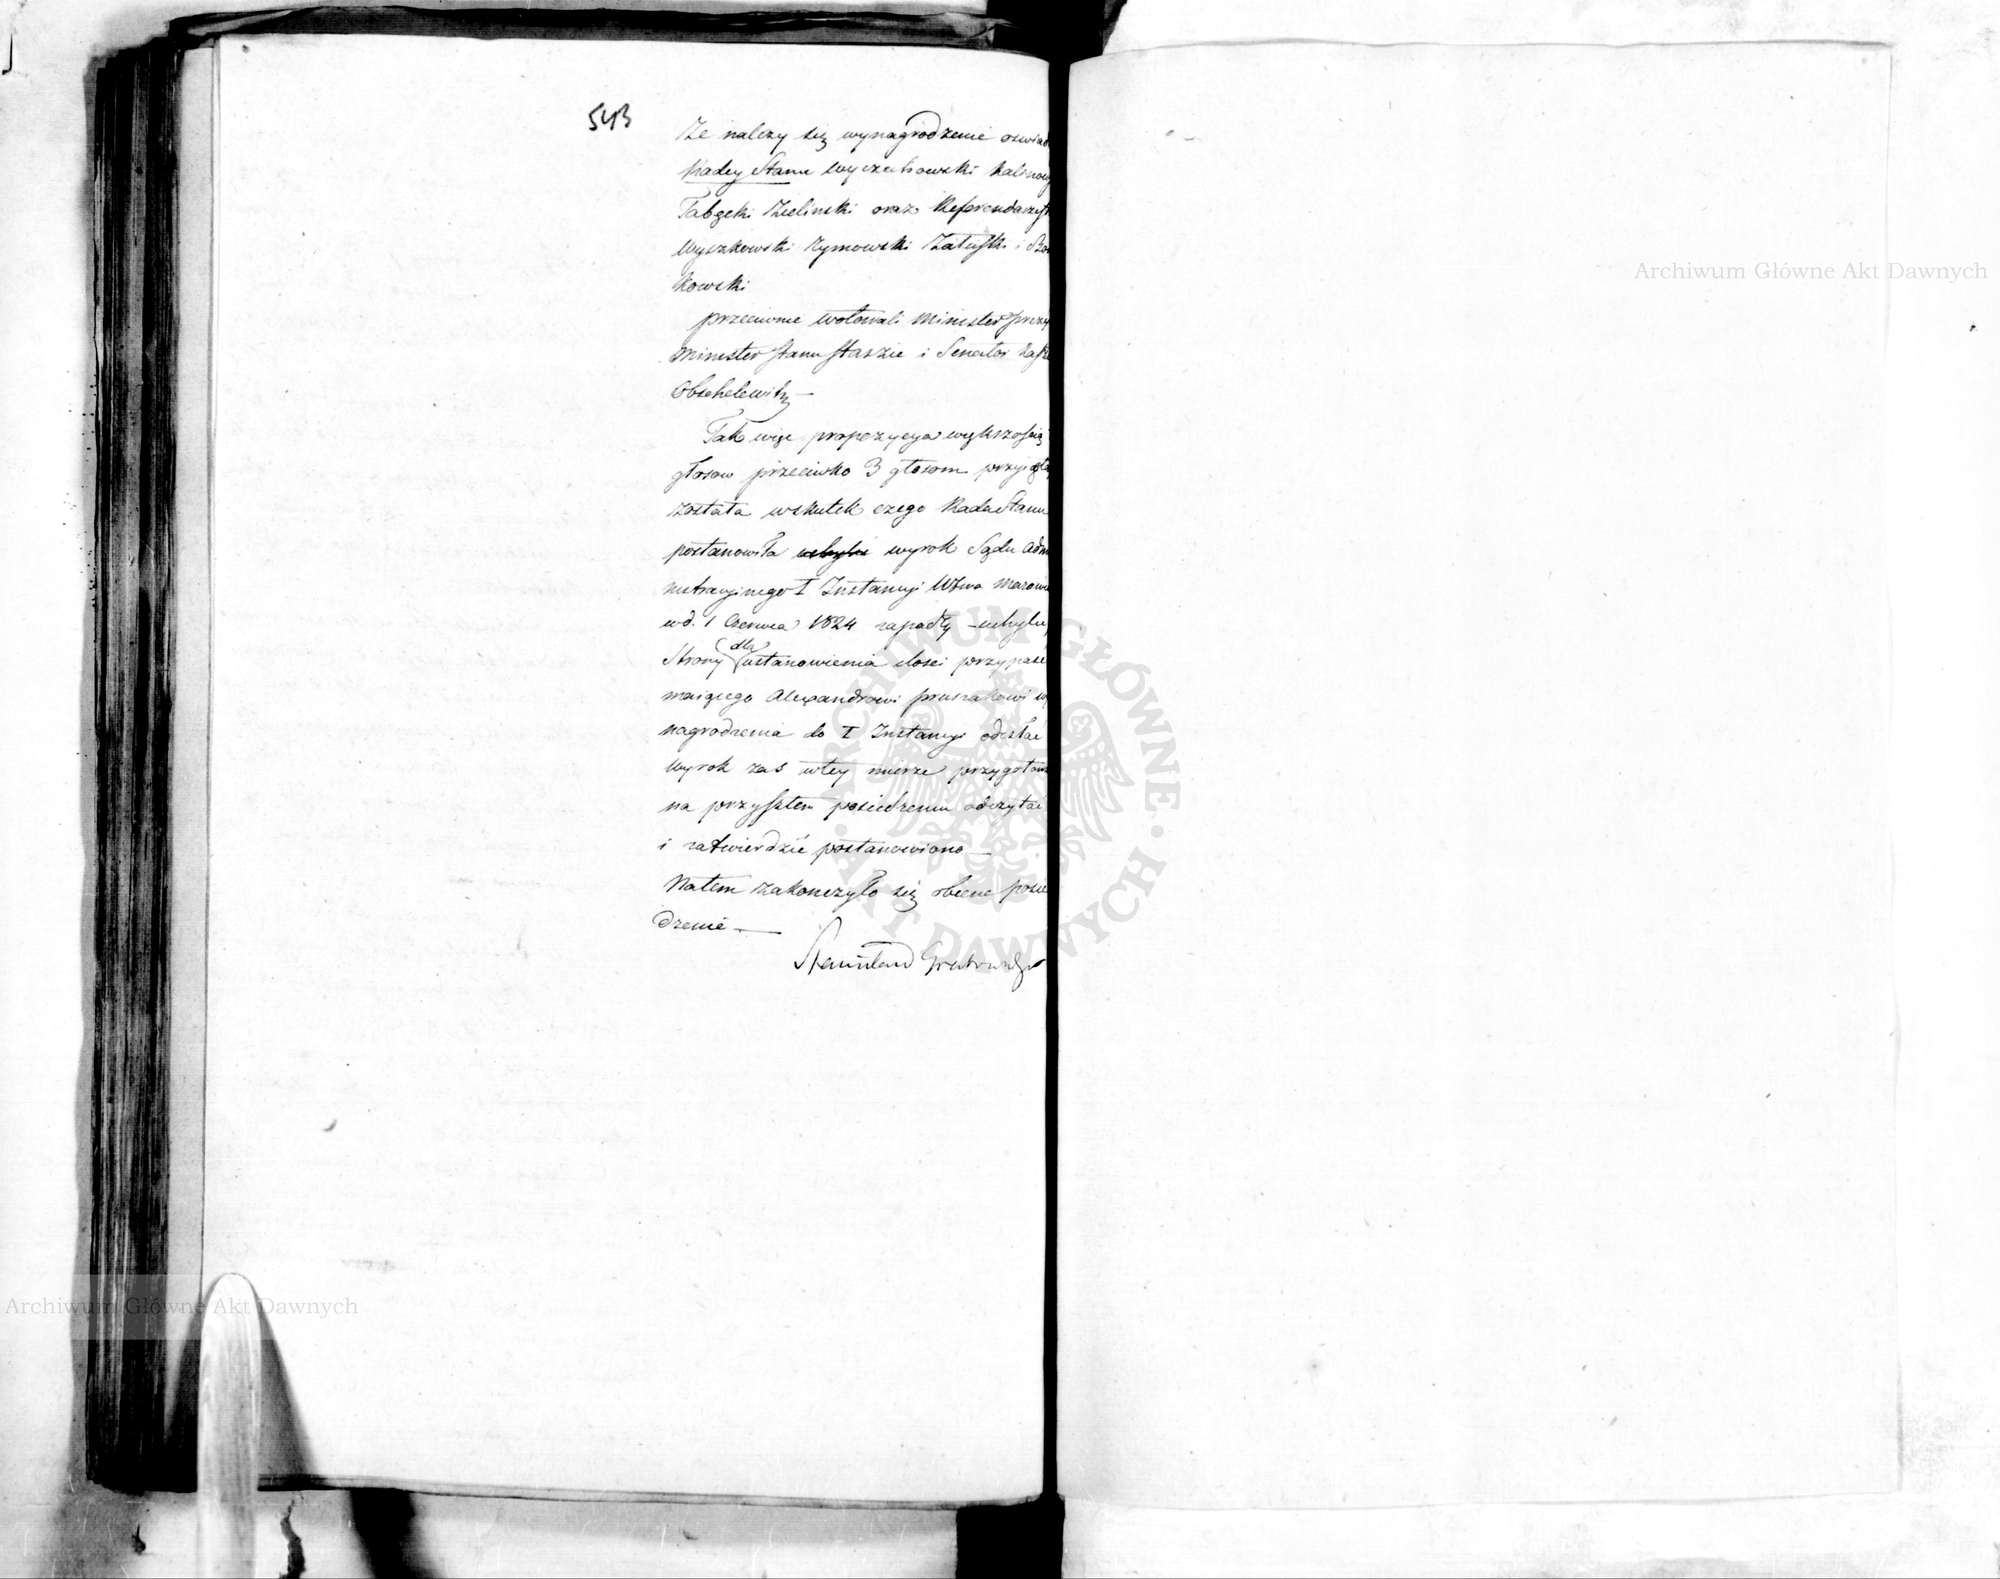 543
Ze należy się wynagrodzenie oswiad
Radcy Stanu Wyczechowski Kalinow
Tabęcki Zieliński oraz Referendarze
Wyszkowski Rymowski Załuski i
kowski
przeciwnie wotowali Minister prezy
Minister stanu Staszic i Senator
Obschelewitz —
Tak więc propozycya większością
głosow przeciwko 3 głosom przyięta
została wskutek czego Rada Stanu
postanowiła uchylić wyrok Sądu Adm
nistracyinego I Instancyi Wztwa Mazow
w d. 1 Czerwca 1824 zapadły — uchylić,
Strony dla ustanowienia ilosci przypad
maiącego Alexandrowi Pruszakowi wy
nagrodzenia do I Instancyi odesłać
Wyrok zas w tey mierze przygotow
na przyszłem posiedzeniu odczytać
i zatwierdzić postanowiono —
Natem zakonczyło się obecne posie
dzenie —
Stanisław Grabowski
Archiwum Główne Akt Dawnych
Archiwum Główne Akt Dawnych
ARCHIWUM GŁÓWNE AKT DAWNYCH